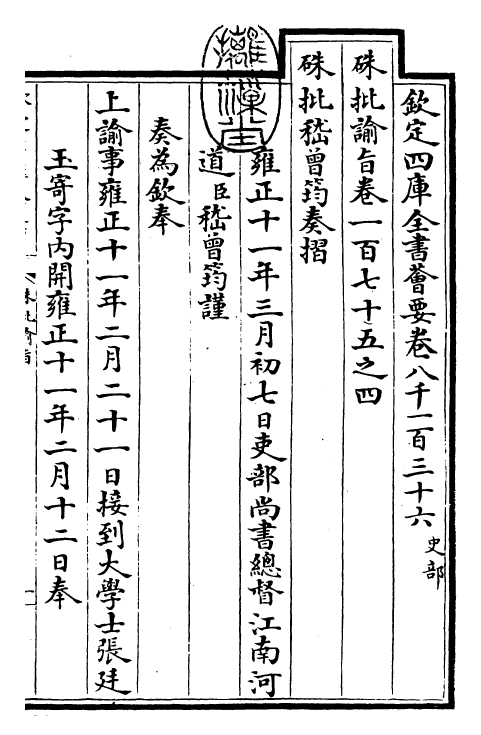 欽定四庫全書薈要卷八千一百三十六 史部
硃批諭旨卷一百七十五之四
硃批嵇曾筠奏摺
雍正十一年三月初七日吏部尚書總督江南河
道臣嵇曾筠謹
奏為欽奉
上諭事雍正十一年二月二十一日接到大學士張廷
玉寄字內開雍正十一年二月十二日奉
硃批諭旨